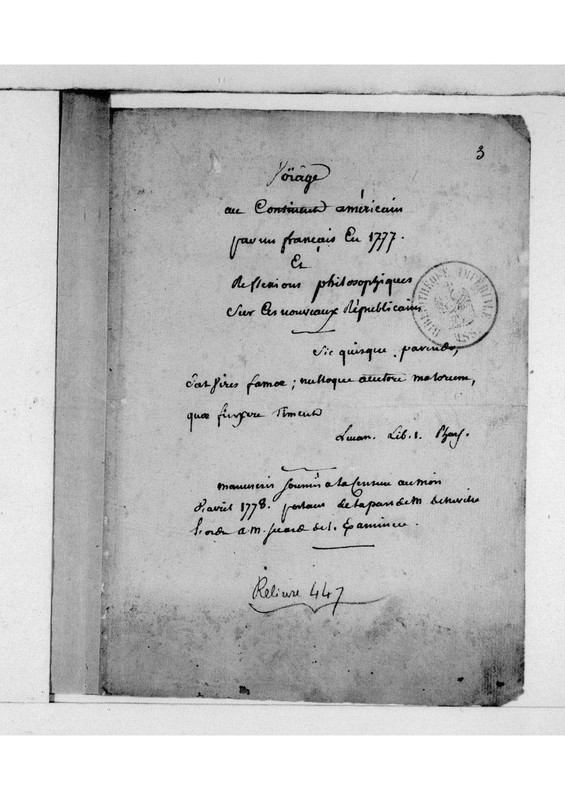 3
Voÿage
au Continent américain
par un français En 1777.
Et
Reflexions philosophiques
Sur Ces nouveaux Républicains
BIBLIOTHEQUE IMPERIALE MSS
Sic quisque pavendo,
dat vires famæ; nulloque auctore malorum,
quæ finxere timent
Lucan. Lib. 1. Phars.
manuscrit soumis a la Censure au mois
d'avril 1778. portant de la part de M de neville
l'ordre a M. de l'Examiner.
Reliure 447